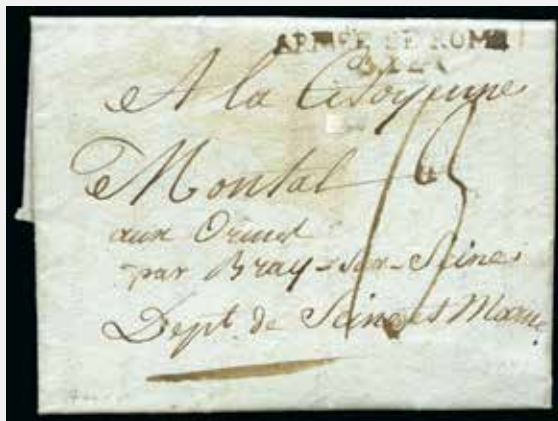 ARMÉE DE ROME
A la Citoyenne
Montal
aux Ormes
par Bray-sur-Seine
Dept. de Seine et Marne
13